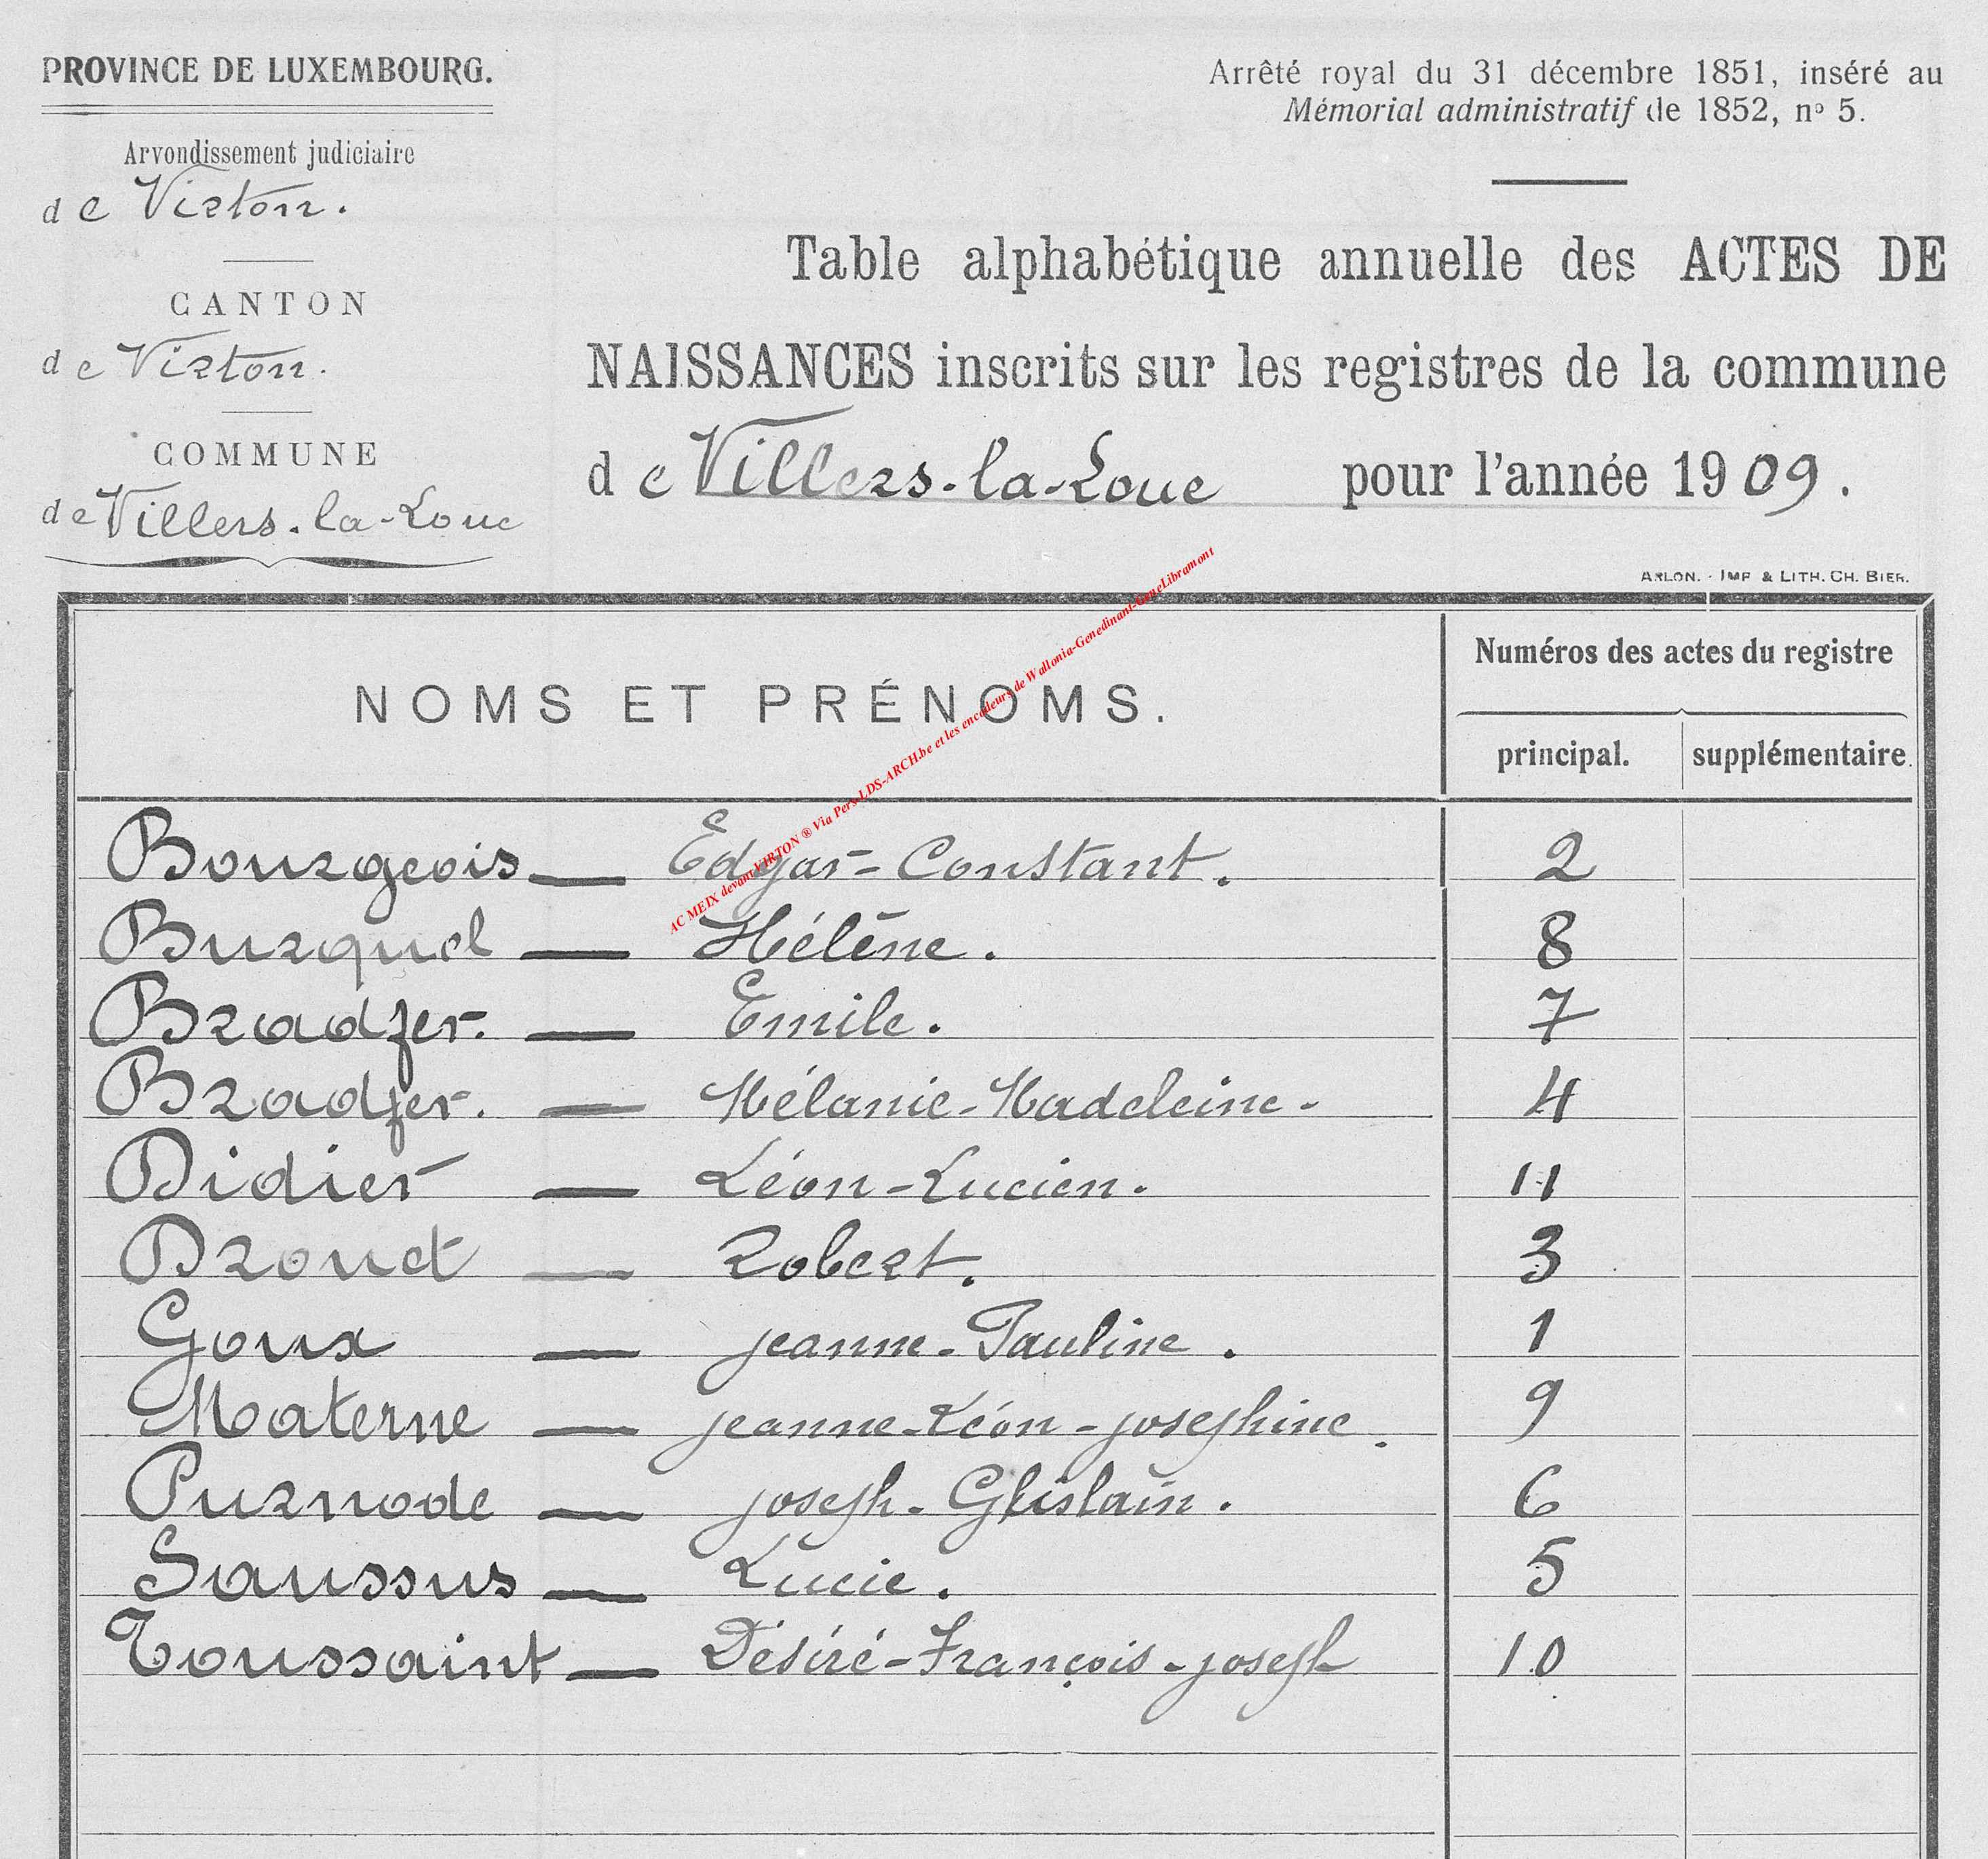 PROVINCE DE LUXEMBOURG.
Arrondissement judiciaire
de Virton.
CANTON
de Virton.
COMMUNE
de Villers-la-Loue
Arrêté royal du 31 décembre 1851, inséré au
Mémorial administratif de 1852, nº 5.
Table alphabétique annuelle des ACTES DE
NAISSANCES inscrits sur les registres de la commune
de Villers-la-Loue pour l'année 1909.
ARLON. - IMP. & LITH. CH. BIER.
NOMS ET PRÉNOMS.
Numéros des actes du registre
principal. supplémentaire.
AC MEIX devant VIRTON ® Via Pers-LDS-ARCH.be et les encodeurs de Wallonia-Genedinant-GeneLibramont
Bourgeois — Edgar-Constant. 2
Burquel — Hélène. 8
Bradfer. — Emile. 7
Bradfer. — Mélanie-Madeleine- 4
Didier — Léon-Lucien. 11
Drouet — Robert. 3
Goux — Jeanne-Pauline. 1
Materne — Jeanne-Léon-Joséphine. 9
Purnode — Joseph-Ghislain. 6
Saussus — Lucie. 5
Toussaint — Désiré-François-Joseph 10